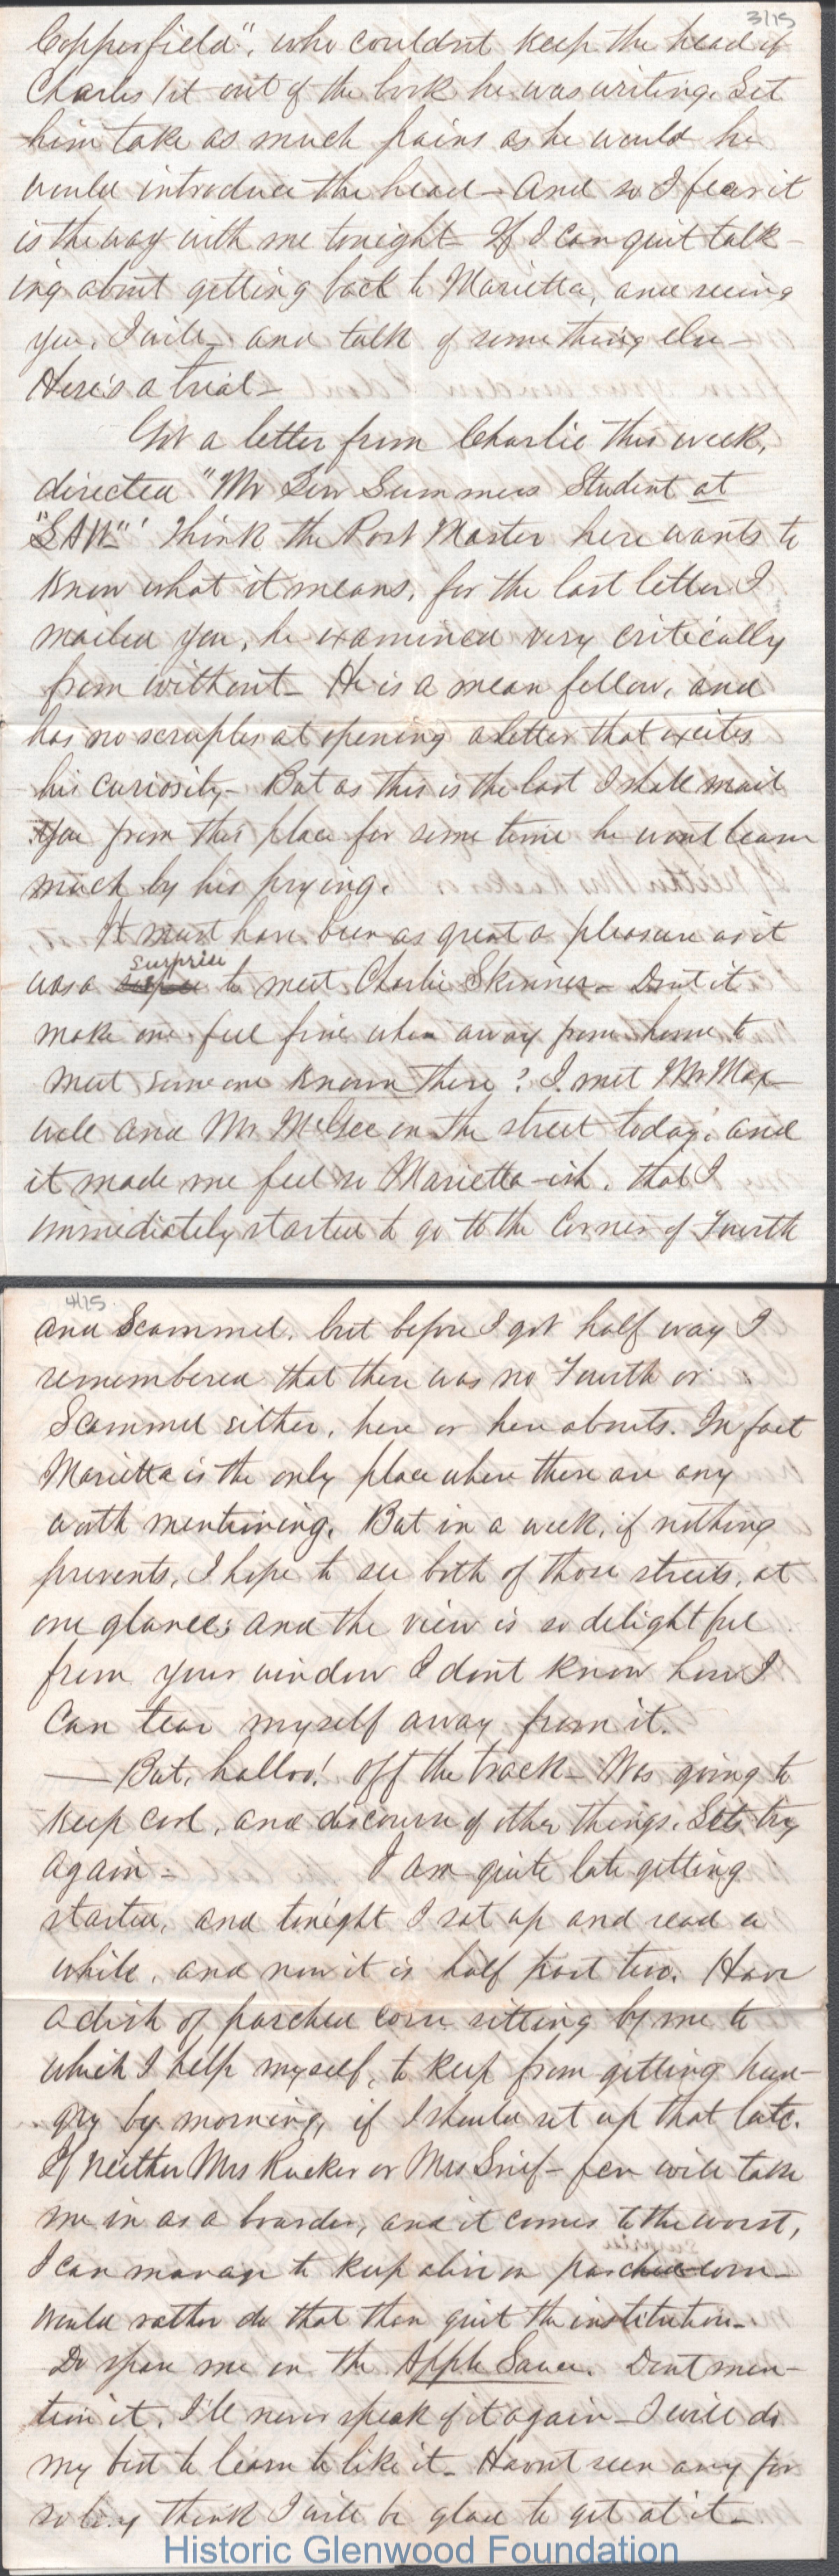 3/15
Copperfield", who couldnt keep the head of
Charles 1st out of the book he was writing. Let
him take as much pains as he would he
would introduce the head – And so I fear it
is the way with me tonight – If I can quit talk-
ing about getting back to Marietta, and seeing
you, I will – and talk of something else –
Here's a trial –
Got a letter from Charlie this week,
directed "Mr Lew Summers Student at
Think the Post Master here wants to
know what it means, for the last letter I
mailed you, he examined very critically
from without – He is a mean fellow, and
has no scruples at opening a letter that excites
his curiosity – But as this is the last I shall mail
you from this place for some time he wont learn
much by his prying.
It must have been as great a pleasure as it
was a surprise to meet Charlie Skinner – Dont it
make one feel fine when away from home to
meet some one known there? I met Mr Max-
well and Mr McGee on the street today, and
it made me feel so Marietta-ish, that I
immediately started to go to the Corner of Fourth
4/15
and Scammel, but before I got half way I
remembered that there was no Fourth or
Scammel either, here or here abouts. In fact
Marietta is the only place where there are any
worth mentioning. But in a week, if nothing
prevents, I hope to see both of those streets, at
one glance; and the view is so delightful
from your window I dont know how I
can tear myself away from it.
— But, halloo! off the track – Was going to
keep cool, and discourse of other things. Lets try
again – I am quite late getting
started, and tonight I sat up and read a
while, and now it is half past two. Have
a dish of parched corn sitting by me to
which I help myself, to keep from getting hun-
gry by morning, if I should set up that late.
If neither Mrs Rucker or Mrs will take
me in as a boarder, and it comes to the worst,
I can manage to keep alive on parched corn –
would rather do that than quit the institution –
Do spare me on the Apple Sauce. Dont men-
tion it, I'll never speak of it again – I will do
my best to learn to like it – Havnt seen any for
so long think I will be glad to get at it –
Historic Glenwood Foundation